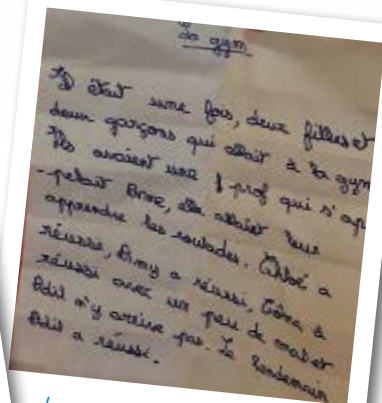 La gym
Il était une fois, deux filles et
deux garçons qui allait à la gym
Ils avaient une prof qui s'ap
-pelait Anne, elle allait leur
apprendre les roulades. Chloé a
réussie, Amy a réussi, a
réussi avec un peu de mal et
Adil n'y arrive pas. Le lendemain
Adil a réussi.